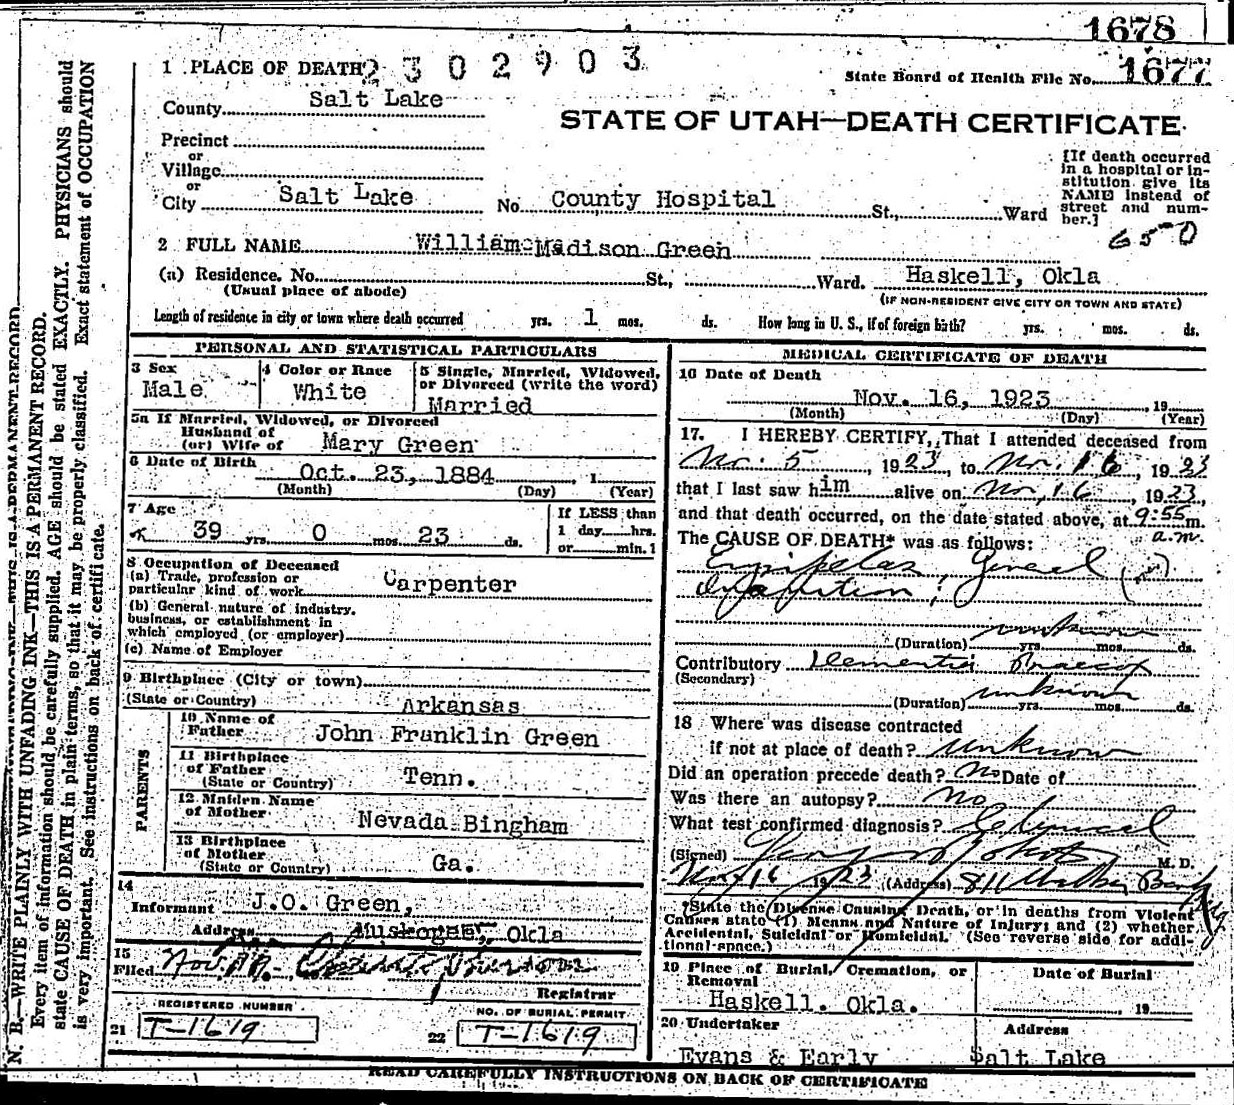 1678
1 PLACE OF DEATH 2302903
State Board of Health File No. 1677
County Salt Lake
STATE OF UTAH—DEATH CERTIFICATE
Precinct
or
Village
or
City Salt Lake No. County Hospital St., Ward
[If death occurred
in a hospital or in-
stitution give its
NAME instead of
street and num-
ber.]
650
2 FULL NAME William Madison Green
(a) Residence. No. St., Ward. Haskell, Okla
(Usual place of abode)
(IF NON-RESIDENT GIVE CITY OR TOWN AND STATE)
Length of residence in city or town where death occurred yrs. 1 mos. ds. How long in U. S., if of foreign birth? yrs. mos. ds.
PERSONAL AND STATISTICAL PARTICULARS
3 Sex
Male
4 Color or Race
White
5 Single, Married, Widowed,
or Divorced (write the word)
Married
5a If Married, Widowed, or Divorced
Husband of
(or) Wife of Mary Green
6 Date of Birth Oct. 23, 1884, 1
(Month) (Day) (Year)
7 Age
39 yrs. 0 mos. 23 ds.
If LESS than
1 day hrs.
or min. 1
8 Occupation of Deceased
(a) Trade, profession or
particular kind of work Carpenter
(b) General nature of industry,
business, or establishment in
which employed (or employer)
(c) Name of Employer
9 Birthplace (City or town)
(State or Country) Arkansas
PARENTS
10 Name of
Father John Franklin Green
11 Birthplace
of Father
(State or Country) Tenn.
12 Maiden Name
of Mother Nevada Bingham
13 Birthplace
of Mother
(State or Country) Ga.
14
Informant J.O. Green,
Address Muskogee, Okla
15
Filed Nov.
Registrar
REGISTERED NUMBER
21 T-1619
NO. OF BURIAL PERMIT
22 T-1619
MEDICAL CERTIFICATE OF DEATH
16 Date of Death
Nov. 16, 1923, 19
(Month) (Day) (Year)
17. I HEREBY CERTIFY, That I attended deceased from
Nov. 5, 1923, to Nov. 16, 1923
that I last saw him alive on Nov, 16, 1923,
and that death occurred, on the date stated above, at 9:55 m.
a.m.
The CAUSE OF DEATH* was as follows:
Erysipelas, General
(Duration) unknown yrs. mos. ds.
Contributory Dementia Praecox
(Secondary)
(Duration) unknown yrs. mos. ds.
18 Where was disease contracted
if not at place of death? unknown
Did an operation precede death? no Date of
Was there an autopsy? no
What test confirmed diagnosis? Clinical
(Signed) M. D.
Nov 16 1923 (Address) 811 Walker Bank Bldg
*State the Disease Causing Death, or in deaths from Violent
Causes state (1) Means and Nature of Injury; and (2) whether
Accidental, Suicidal or Homicidal. (See reverse side for addi-
tional space.)
19 Place of Burial, Cremation, or
Removal
Haskell. Okla.
Date of Burial
19
20 Undertaker
Evans & Early
Address
Salt Lake
READ CAREFULLY INSTRUCTIONS ON BACK OF CERTIFICATE
N. B.—WRITE PLAINLY WITH UNFADING INK—THIS IS A PERMANENT RECORD.
Every item of information should be carefully supplied. AGE should be stated EXACTLY. PHYSICIANS should
state CAUSE OF DEATH in plain terms, so that it may be properly classified. Exact statement of OCCUPATION
is very important. See instructions on back of certificate.